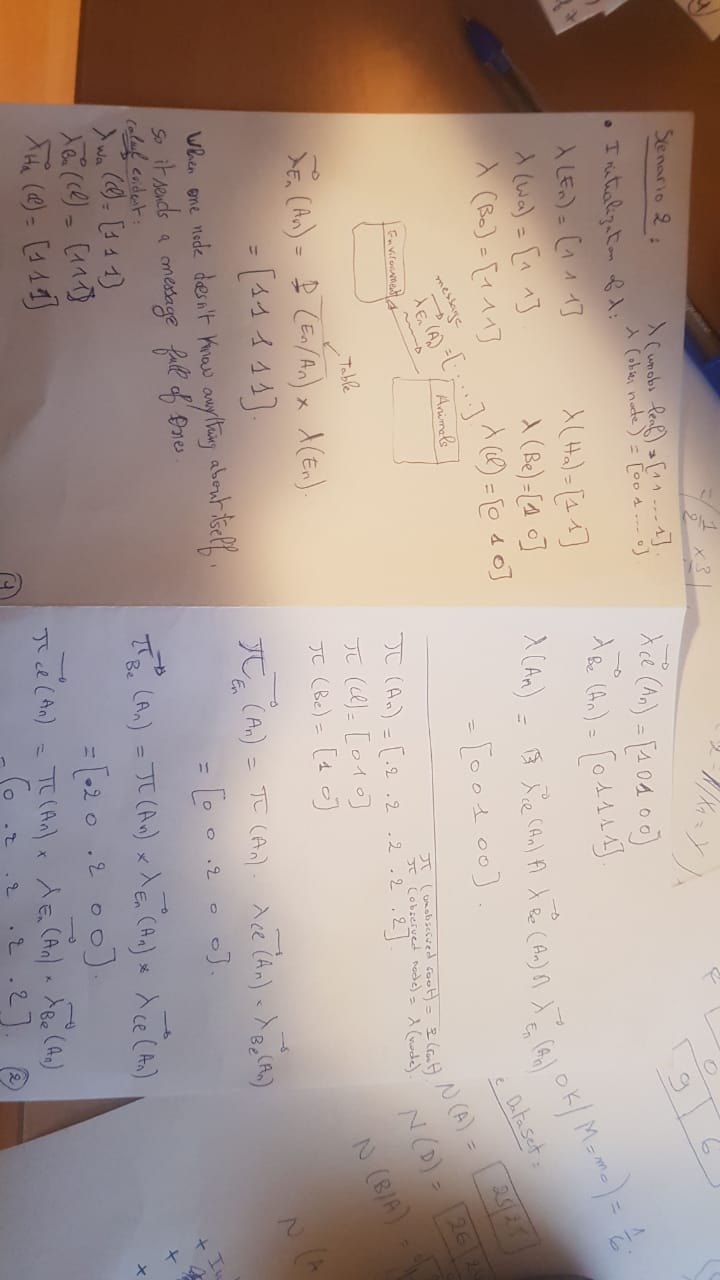 Scenario 2:
λ(unobs leaf) = [1 1 ... 1].
λ(obser node) = [0 0 1 ... 0].
• Initialization of λ:
λ(En) = [1 1 1]
λ(Ha) = [1 1]
λ(Wa) = [1 1]
λ(Be) = [1 0]
λ(Bo) = [1 1 1]
λ(Cl) = [0 1 0]
message
λEn(An) = [.....]
Animals
Environment
Table
λEn(An) = P(En/An) × λ(En).
= [1 1 1 1 1].
When one node doesn't know anything about itself,
so it sends a message full of Ones.
evident:
λWa(Cl) = [1 1 1]
λBo(Cl) = [1 1 1]
λHa(Cl) = [1 1 1]
1
λCl(An) = [1 0 1 0 0]
λBe(An) = [0 1 1 1 1].
λ(An) = λCl(An) ∩ λBe(An) ∩ λEn(An)
= [0 0 1 0 0].
π(unobserved root) = P(root).
π(observed node) = λ(node).
π(An) = [.2 .2 .2 .2 .2].
π(Cl) = [0 1 0]
π(Be) = [1 0]
πEn(An) = π(An) . λCl(An) × λBe(An)
= [0 0 .2 0 0].
πBe(An) = π(An) × λEn(An) × λCl(An)
= [.2 0 .2 0 0].
πCl(An) = π(An) × λEn(An) × λBe(An)
= [0 .2 .2 .2 .2].
2
= (1/2 × 3/
/X1 = Y)
0
9 6
OK/M=mo) = 1/6.
Dataset:
N(A) = 25 25
N(D) = 26
N(B/A) =
N(A